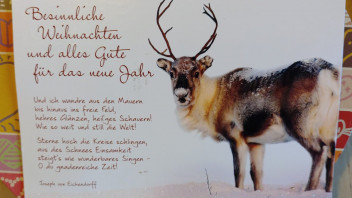 Besinnliche
Weihnachten
und alles Gute
für das neue Jahr
Und ich wandre aus den Mauern
bis hinaus ins freie Feld,
hehres Glänzen, heil'ges Schauern!
Wie so weit und still die Welt!
Sterne hoch die Kreise schlingen,
aus des Schnees Einsamkeit
steigt's wie wunderbares Singen -
O du gnadenreiche Zeit!
Joseph von Eichendorff